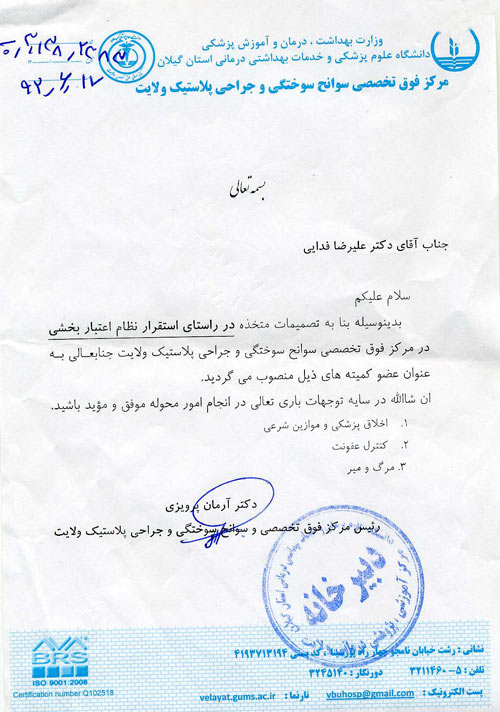 وزارت بهداشت ، درمان و آموزش پزشکی
دانشگاه علوم پزشکی و خدمات بهداشتی درمانی استان گیلان
مرکز فوق تخصصی سوانح سوختگی و جراحی پلاستیک ولایت
۹۲/۶/۱۲
بسمه تعالی
جناب آقای دکتر علیرضا فدایی
سلام علیکم
بدینوسیله بنا به تصمیمات متخذه در راستای استقرار نظام اعتبار بخشی
در مرکز فوق تخصصی سوانح سوختگی و جراحی پلاستیک ولایت جنابعالی به
عنوان عضو کمیته های ذیل منصوب می گردید.
ان شاالله در سایه توجهات باری تعالی در انجام امور محوله موفق و مؤید باشید.
۱. اخلاق پزشکی و موازین شرعی
۲. کنترل عفونت
۳. مرگ و میر
دکتر آرمان پرویزی
رئیس مرکز فوق تخصصی و سوانح سوختگی و جراحی پلاستیک ولایت
دبیر خانه
نشانی : رشت خیابان نامجو چهار راه ، کد پستی ۴۱۹۳۷۱۳۱۹۴
تلفن : ۵-۳۲۱۱۴۶۰ دورنگار : ۳۲۴۵۱۴۰
پست الکترونیک : vbuhosp@gmail.com تارنما : velayat.gums.ac.ir
BRS
ISO 9001:2008
Certification number Q102518